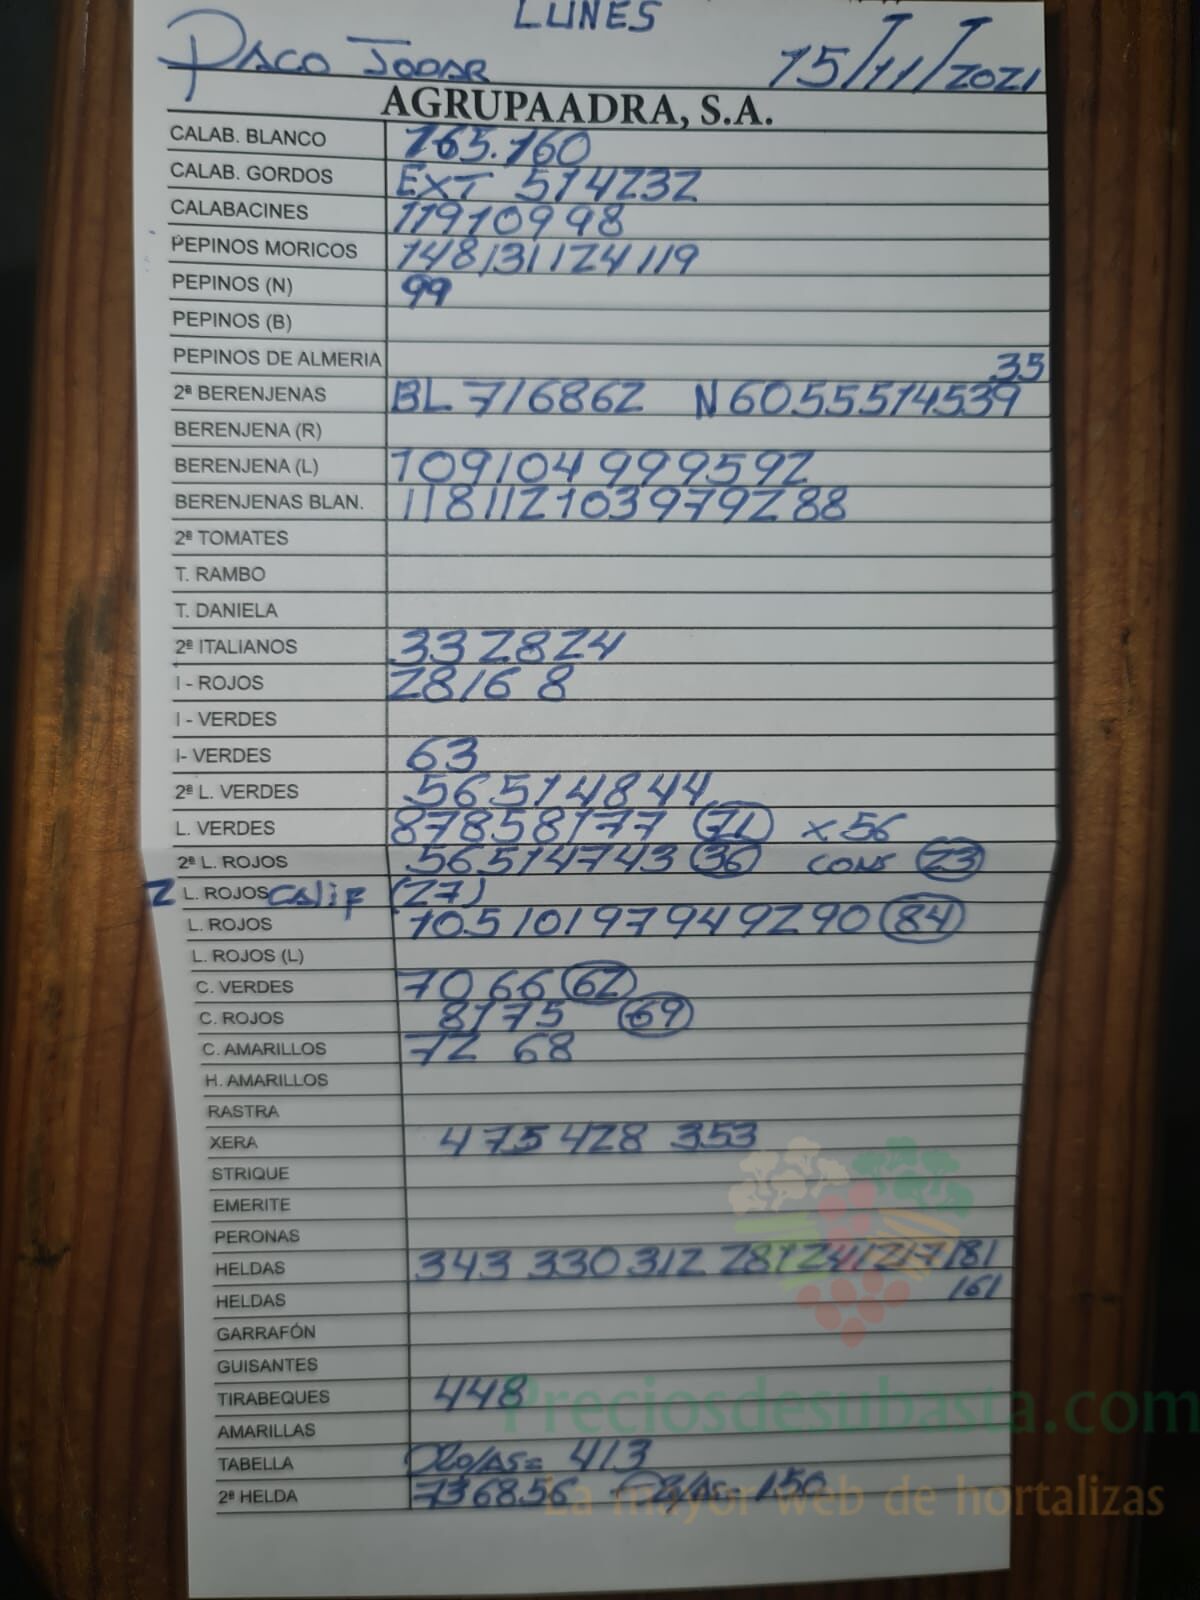 LUNES
PACO JODAR 15/11/2021
AGRUPAADRA, S.A.
CALAB. BLANCO 165.160
CALAB. GORDOS EXT 514232
CALABACINES 119109 98
PEPINOS MORICOS 148131124119
PEPINOS (N) 99
PEPINOS (B)
PEPINOS DE ALMERIA 35
2ª BERENJENAS BL 716862 N 6055514539
BERENJENA (R)
BERENJENA (L) 109104 999592
BERENJENAS BLAN. 118112103979288
2ª TOMATES
T. RAMBO
T. DANIELA
2ª ITALIANOS 332824
I - ROJOS 2816 8
I - VERDES
I- VERDES 63
2ª L. VERDES 56514844
L. VERDES 87858177 71 x 56
2ª L. ROJOS 56514743 36 CONS 23
2 L. ROJOS CALIF (27)
L. ROJOS 105 101 97949290 84
L. ROJOS (L)
C. VERDES 70 66 62
C. ROJOS 8175 69
C. AMARILLOS 72 68
H. AMARILLOS
RASTRA
XERA 475 428 353
STRIQUE
EMERITE
PERONAS
HELDAS 343 330 312 281 241 217 181
HELDAS 161
GARRAFÓN
GUISANTES
TIRABEQUES 448
Preciosdesubasta.com
AMARILLAS
TABELLA 413
2ª HELDA 736856 150
La mayor web de hortalizas